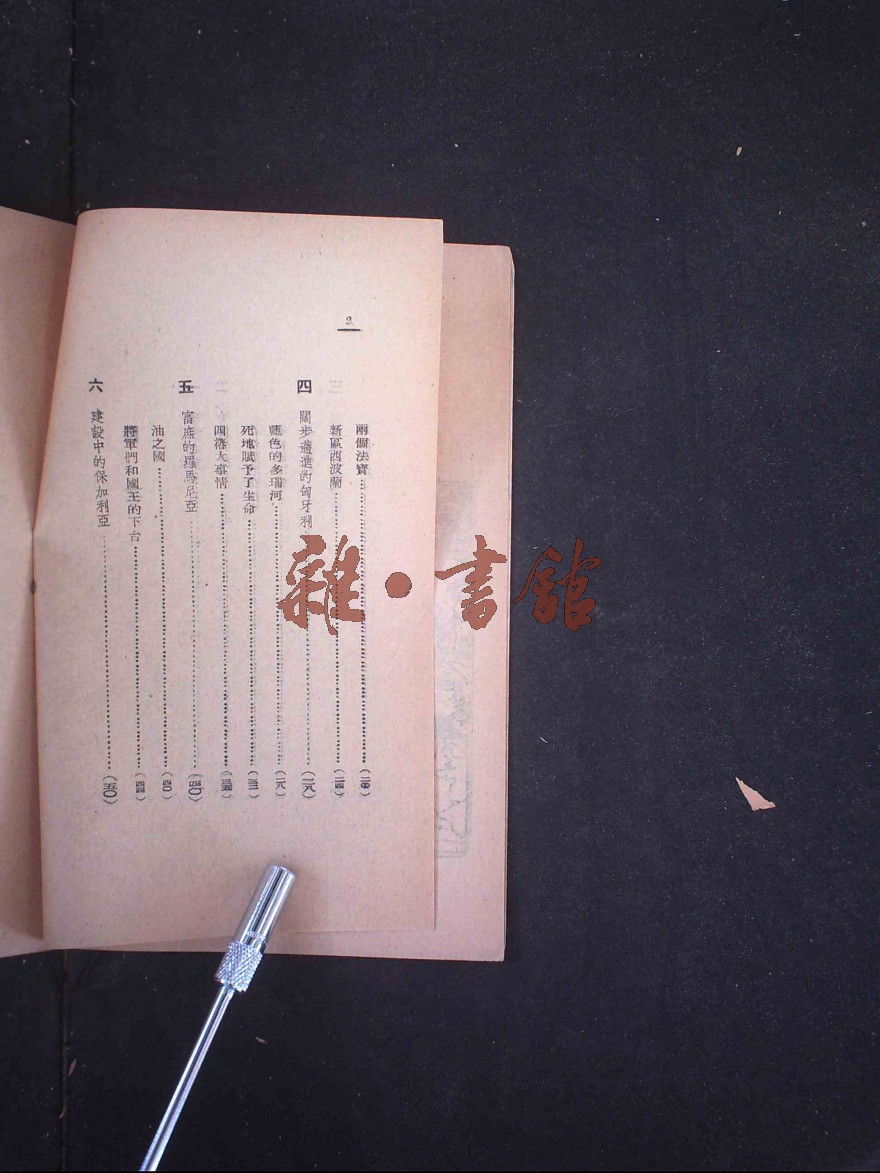 2
兩個法寶……(二〇)
新區西波蘭……(二四)
四 闊步邁進的匈牙利……(二八)
藍色的多瑙河……(二八)
死地賦予了生命……(三二)
四樁大事情……(三四)
五 富庶的羅馬尼亞……(四〇)
油之國……(四〇)
將軍們和國王的下台……(四四)
六 建設中的保加利亞……(五〇)
雜·書館